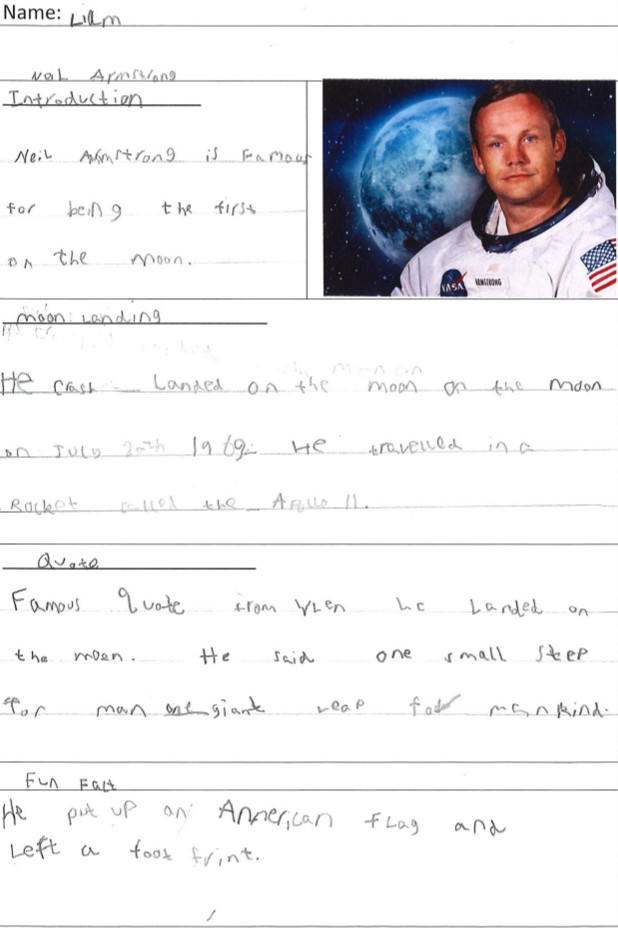 Name: Liam
Neil Armstrong
Introduction
Neil Armstrong is Famous
for being the first
on the moon.
NASA ARMSTRONG
moon Landing
He crash Landed on the moon on the moon
on JULY 20th 1969. He travelled in a
Rocket called the Apollo 11.
Quote
Famous Quote from when he Landed on
the moon. He said one small step
for man one giant Leap for mankind.
Fun Fact
He put up an American flag and
Left a foot frint.